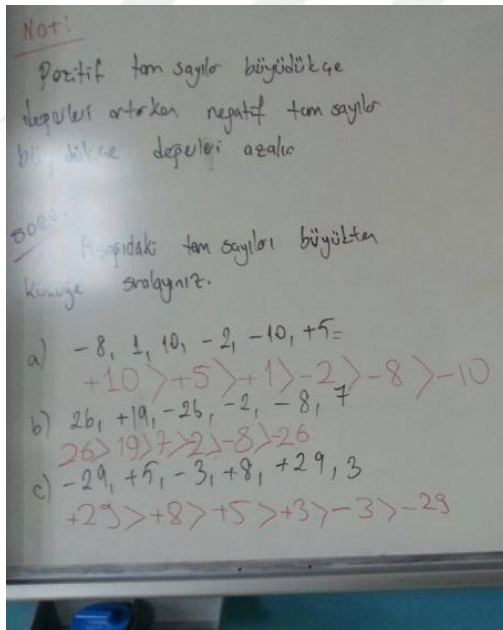 NOT:
Pozitif tam sayılar büyüdükçe
değerleri artarken negatif tam sayılar
büyüdükçe değerleri azalır
SORU:
Aşağıdaki tam sayıları büyükten
küçüğe sıralayınız.
a) -8, 1, 10, -2, -10, +5=
+10>+5>+1>-2>-8>-10
b) 26, +19, -26, -2, -8, 7
26>19>7>-2>-8>-26
c) -29, +5, -3, +8, +29, 3
+29>+8>+5>+3>-3>-29